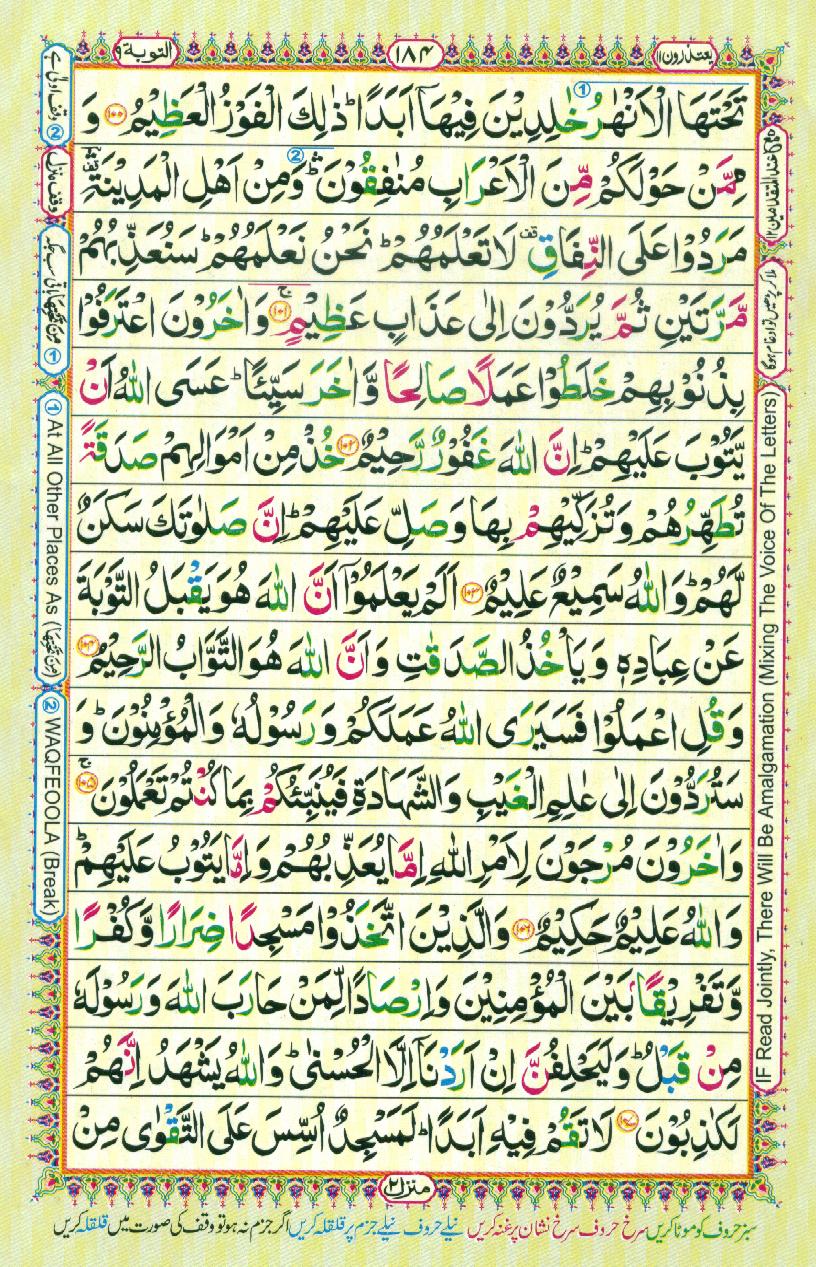 يعتذرون ۱۱
۱۸۴
التوبة ۹
تَحْتَهَا الْاَنْهٰرُ خٰلِدِيْنَ فِيْهَاۤ اَبَدًا ؕ ذٰلِكَ الْفَوْزُ الْعَظِيْمُ ﴿۱۰۰﴾ وَ
مِمَّنْ حَوْلَكُمْ مِّنَ الْاَعْرَابِ مُنٰفِقُوْنَ ۛؕ وَمِنْ اَهْلِ الْمَدِيْنَةِ ۛ
مَرَدُوْا عَلَى النِّفَاقِ ۫ لَا تَعْلَمُهُمْ ؕ نَحْنُ نَعْلَمُهُمْ ؕ سَنُعَذِّبُهُمْ
مَّرَّتَيْنِ ثُمَّ يُرَدُّوْنَ اِلٰى عَذَابٍ عَظِيْمٍ ﴿۱۰۱﴾ۚ وَاٰخَرُوْنَ اعْتَرَفُوْا
بِذُنُوْبِهِمْ خَلَطُوْا عَمَلًا صَالِحًا وَّاٰخَرَ سَيِّئًا ؕ عَسَى اللّٰهُ اَنْ
يَّتُوْبَ عَلَيْهِمْ ؕ اِنَّ اللّٰهَ غَفُوْرٌ رَّحِيْمٌ ﴿۱۰۲﴾ خُذْ مِنْ اَمْوَالِهِمْ صَدَقَةً
تُطَهِّرُهُمْ وَتُزَكِّيْهِمْ بِهَا وَصَلِّ عَلَيْهِمْ ؕ اِنَّ صَلٰوتَكَ سَكَنٌ
لَّهُمْ ؕ وَاللّٰهُ سَمِيْعٌ عَلِيْمٌ ﴿۱۰۳﴾ اَلَمْ يَعْلَمُوْۤا اَنَّ اللّٰهَ هُوَ يَقْبَلُ التَّوْبَةَ
عَنْ عِبَادِهٖ وَيَاْخُذُ الصَّدَقٰتِ وَاَنَّ اللّٰهَ هُوَ التَّوَّابُ الرَّحِيْمُ ﴿۱۰۴﴾
وَقُلِ اعْمَلُوْا فَسَيَرَى اللّٰهُ عَمَلَكُمْ وَرَسُوْلُهٗ وَالْمُؤْمِنُوْنَ ؕ وَ
سَتُرَدُّوْنَ اِلٰى عٰلِمِ الْغَيْبِ وَالشَّهَادَةِ فَيُنَبِّئُكُمْ بِمَا كُنْتُمْ تَعْمَلُوْنَ ﴿۱۰۵﴾ۚ
وَاٰخَرُوْنَ مُرْجَوْنَ لِاَمْرِ اللّٰهِ اِمَّا يُعَذِّبُهُمْ وَاِمَّا يَتُوْبُ عَلَيْهِمْ ؕ
وَاللّٰهُ عَلِيْمٌ حَكِيْمٌ ﴿۱۰۶﴾ وَالَّذِيْنَ اتَّخَذُوْا مَسْجِدًا ضِرَارًا وَّكُفْرًا
وَّتَفْرِيْقًۢا بَيْنَ الْمُؤْمِنِيْنَ وَاِرْصَادًا لِّمَنْ حَارَبَ اللّٰهَ وَرَسُوْلَهٗ
مِنْ قَبْلُ ؕ وَلَيَحْلِفُنَّ اِنْ اَرَدْنَاۤ اِلَّا الْحُسْنٰى ؕ وَاللّٰهُ يَشْهَدُ اِنَّهُمْ
لَكٰذِبُوْنَ ﴿۱۰۷﴾ لَا تَقُمْ فِيْهِ اَبَدًا ؕ لَمَسْجِدٌ اُسِّسَ عَلَى التَّقْوٰى مِنْ
منزل ۲
سبز حروف کو موٹا کریں سرخ حروف سرخ نشان پر غنہ کریں نیلے حروف نیلے جزم پر قلقلہ کریں اگر جزم نہ ہو تو وقف کی صورت میں قلقلہ کریں
② وقف اولیٰ ہے
وقف منزل
① مِنْ تَحْتِهَا باقی سب جگہ
① At All Other Places As (مِنْ تَحْتِهَا)
② WAQFEOOLA (Break)
ملا کر پڑھیں تو ادغام ہوگا
IF Read Jointly, There Will Be Amalgamation (Mixing The Voice Of The Letters)